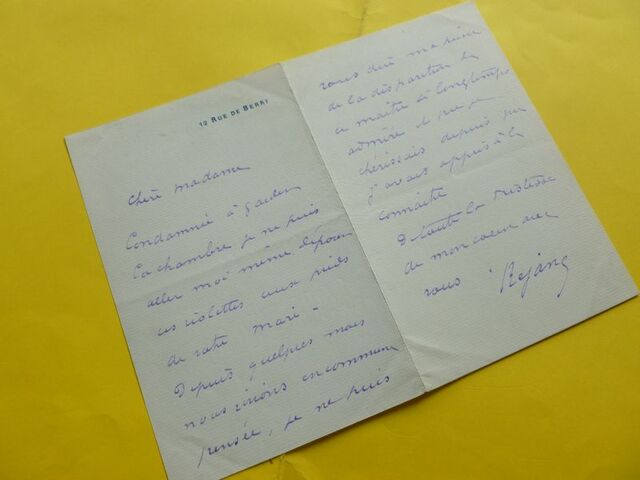 12 RUE DE BERRI
Chère madame
Condamnée à garder
la chambre je ne puis
aller moi même déposer
ces violettes aux pieds
de votre mari -
Depuis quelques mois
nous vivions en commune
pensée, je ne puis
vous dire ma peine
de la disparition de
ce maître si longtemps
admiré et que je
chérissais depuis que
j'avais appris à le
connaître
De toute la tristesse
de mon coeur avec
vous Réjane